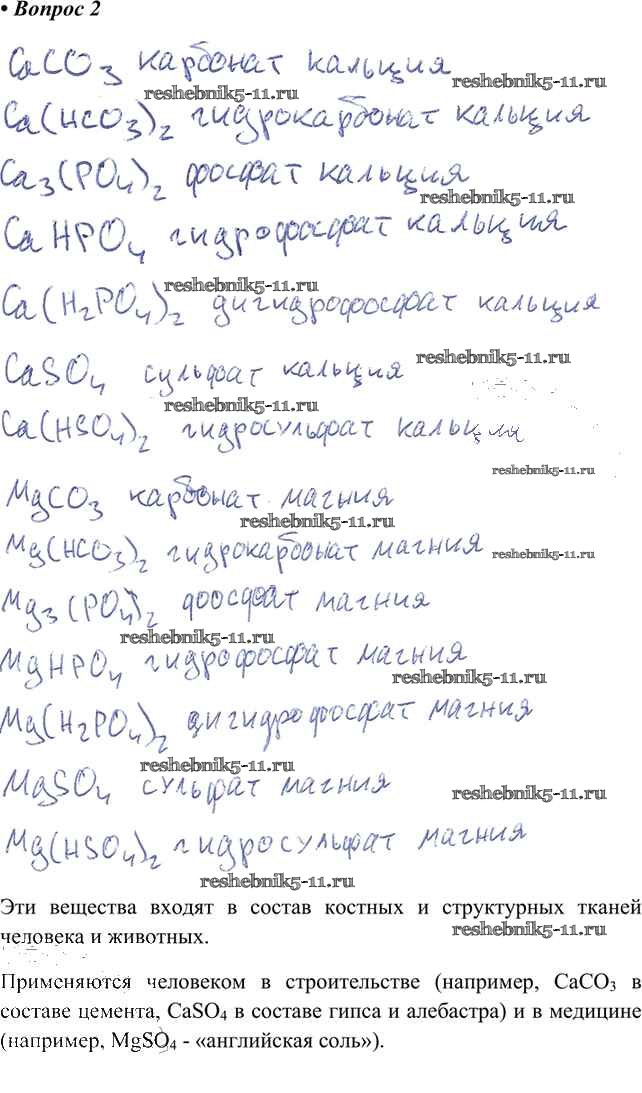 • Вопрос 2
CaCO3 карбонат кальция
reshebnik5-11.ru
reshebnik5-11.ru
Ca(HCO3)2 гидрокарбонат кальция
Ca3(PO4)2 фосфат кальция
reshebnik5-11.ru
CaHPO4 гидрофосфат кальция
reshebnik5-11.ru
Ca(H2PO4)2 дигидрофосфат кальция
reshebnik5-11.ru
CaSO4 сульфат кальция
reshebnik5-11.ru
Ca(HSO4)2 гидросульфат кальция
reshebnik5-11.ru
MgCO3 карбонат магния
reshebnik5-11.ru
Mg(HCO3)2 гидрокарбонат магния
reshebnik5-11.ru
Mg3(PO4)2 фосфат магния
reshebnik5-11.ru
MgHPO4 гидрофосфат магния
reshebnik5-11.ru
Mg(H2PO4)2 дигидрофосфат магния
reshebnik5-11.ru
MgSO4 сульфат магния
reshebnik5-11.ru
Mg(HSO4)2 гидросульфат магния
reshebnik5-11.ru
Эти вещества входят в состав костных и структурных тканей
человека и животных.
reshebnik5-11.ru
Применяются человеком в строительстве (например, CaCO3 в
составе цемента, CaSO4 в составе гипса и алебастра) и в медицине
(например, MgSO4 - «английская соль»).